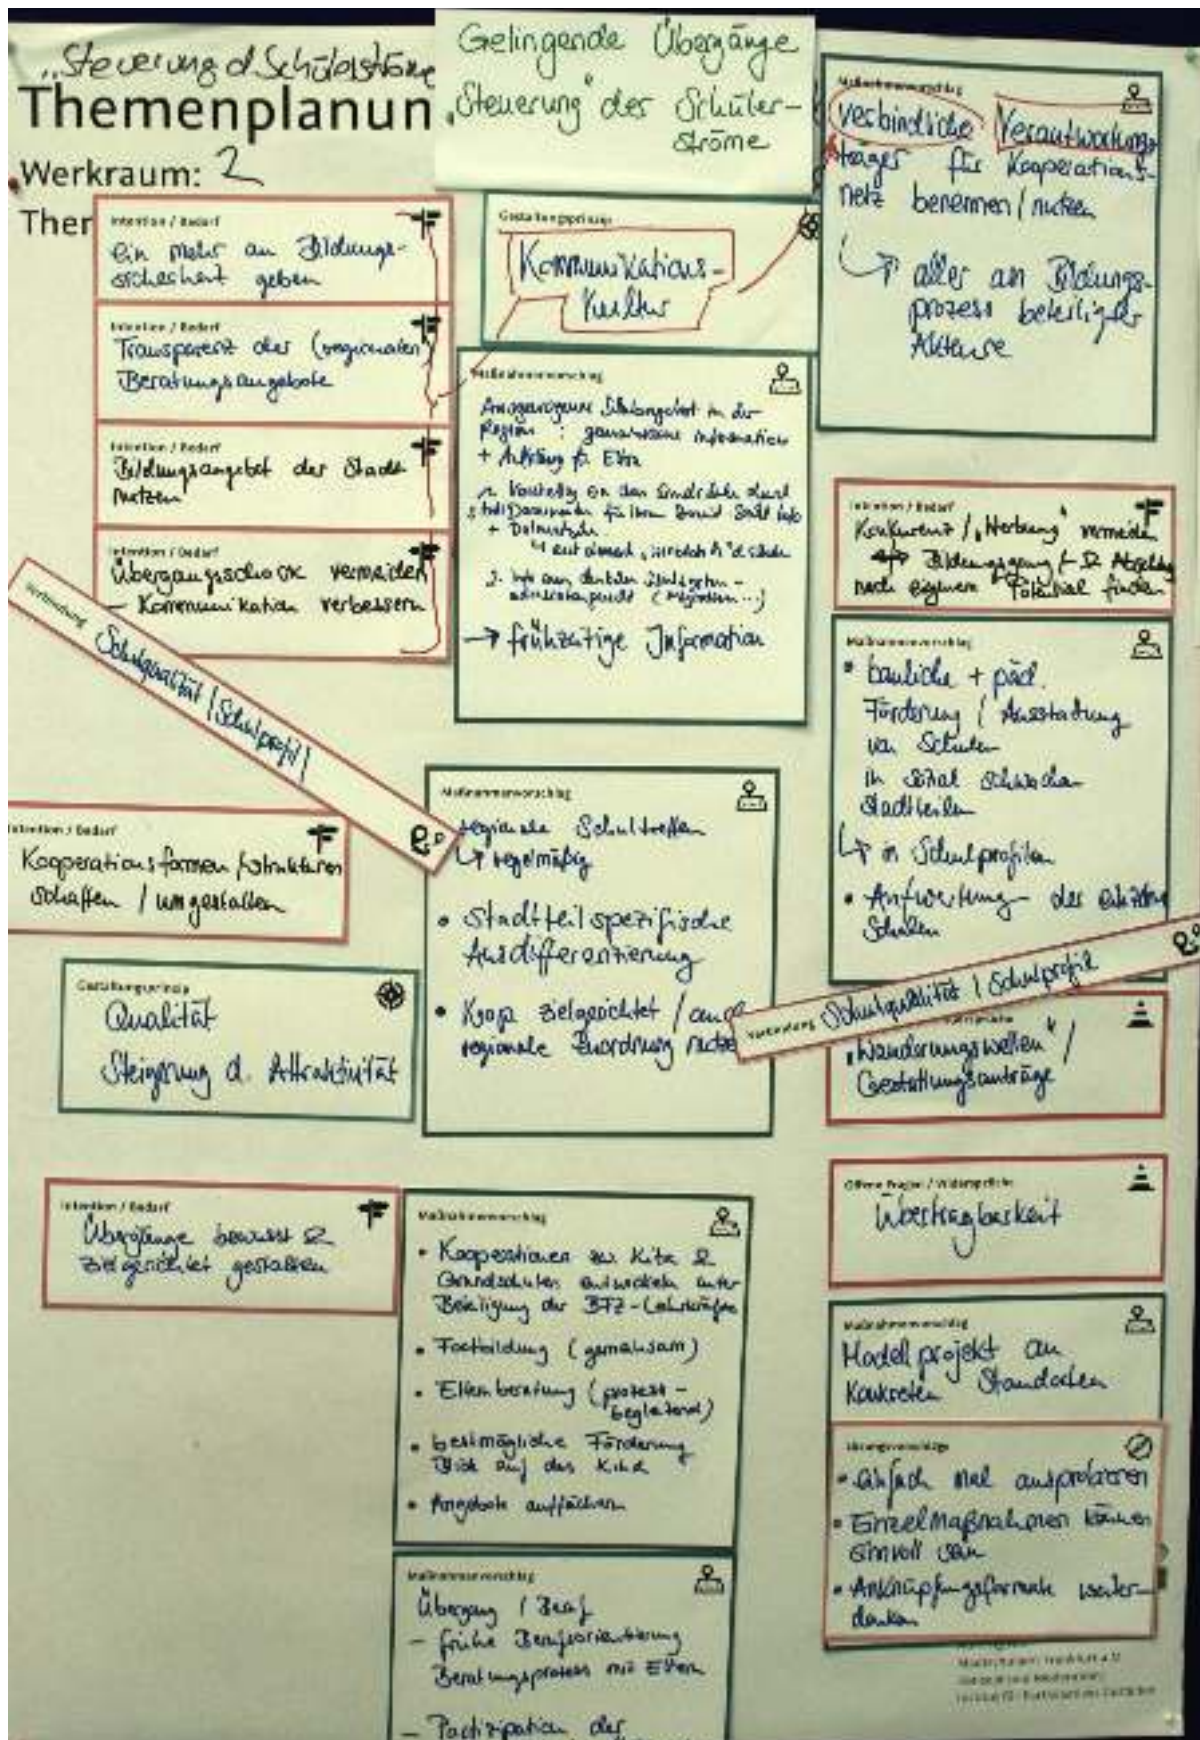 „Steuerung d. Schülerströme
Themenplanun
Werkraum: 2
Ther
Gelingende Übergänge
„Steuerung" der Schüler-
ströme
Intention / Bedarf
Ein Mehr an Bildungs-
sicherheit geben
Intention / Bedarf
Transparenz der (regionalen
Beratungsangebote
Intention / Bedarf
Bildungsangebot der Stadt
nutzen
Intention / Bedarf
Übergangsschock vermeiden
- Kommunikation verbessern
Verbindung Schulqualität / Schulprofil /
Intention / Bedarf
Kooperationsformen / Strukturen
schaffen / umgestalten
Gestaltungsprinzip
Qualität
Steigerung d. Attraktivität
Intention / Bedarf
Übergänge bewusst &
zielgerichtet gestalten
Gestaltungsprinzip
Kommunikations-
Kultur
Maßnahmenvorschlag
Schulangebot in der
Region : gemeinsame Information
+ für Eltern
1. an den Grundschulen durch
+ Dolmetscher
2. Info
→ frühzeitige Information
Maßnahmenvorschlag
regionale Schultreffen
↳ regelmäßig
• Stadtteilspezifische
Ausdifferenzierung
• Koop zielgerichtet / auch
regionale Zuordnung nutzen
Maßnahmenvorschlag
• Kooperationen zw. Kita &
Grundschulen entwickeln unter
Beteiligung der BFZ-Lehrkräfte
• Fortbildung (gemeinsam)
• Elternberatung (prozess-
begleitend)
• bestmögliche Förderung
Blick auf das Kind
• Angebote auffächern
Maßnahmenvorschlag
Übergang / Beruf
- frühe Berufsorientierung
Beratungsprozess mit Eltern
- Partizipation der
Maßnahmenvorschlag
verbindliche Verantwortungs-
träger für Kooperations-
netz benennen / nutzen
↳ aller am Bildungs-
prozess beteiligter
Akteure
Intention / Bedarf
Konkurrenz / „Werbung" vermeiden
Bildungsgang
nach eigenem Potential finden
Maßnahmenvorschlag
• bauliche + päd.
Förderung / Ausstattung
von Schulen
in sozial schwachen
Stadtteilen
↳ in Schulprofilen
• Aufwertung der einzelnen
Schulen
Verbindung Schulqualität / Schulprofil
„Wanderungswellen" /
Gestattungsanträge
Offene Fragen / Widersprüche
Übertragbarkeit
Maßnahmenvorschlag
Modellprojekt an
konkreten Standorten
Lösungsvorschläge
• einfach mal ausprobieren
• Einzelmaßnahmen können
sinnvoll sein
• Anknüpfungsformate weiter-
denken